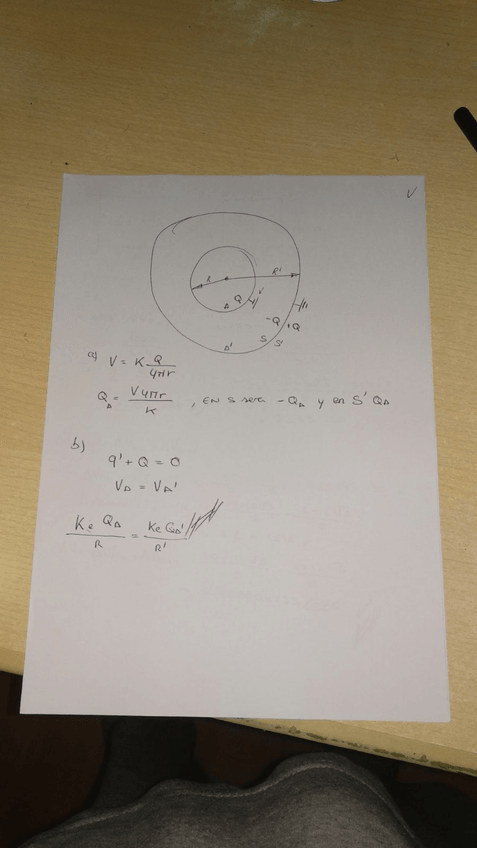 V
R
R'
A Q
V
-Q +Q
S S'
A'
a) V = K Q / 4πr
Q_A = V4πr / K , EN S será -Q_A y en S' Q_A
b)
q' + Q = 0
V_A = V_A'
Ke Q_A / R = Ke Q_A' / R'